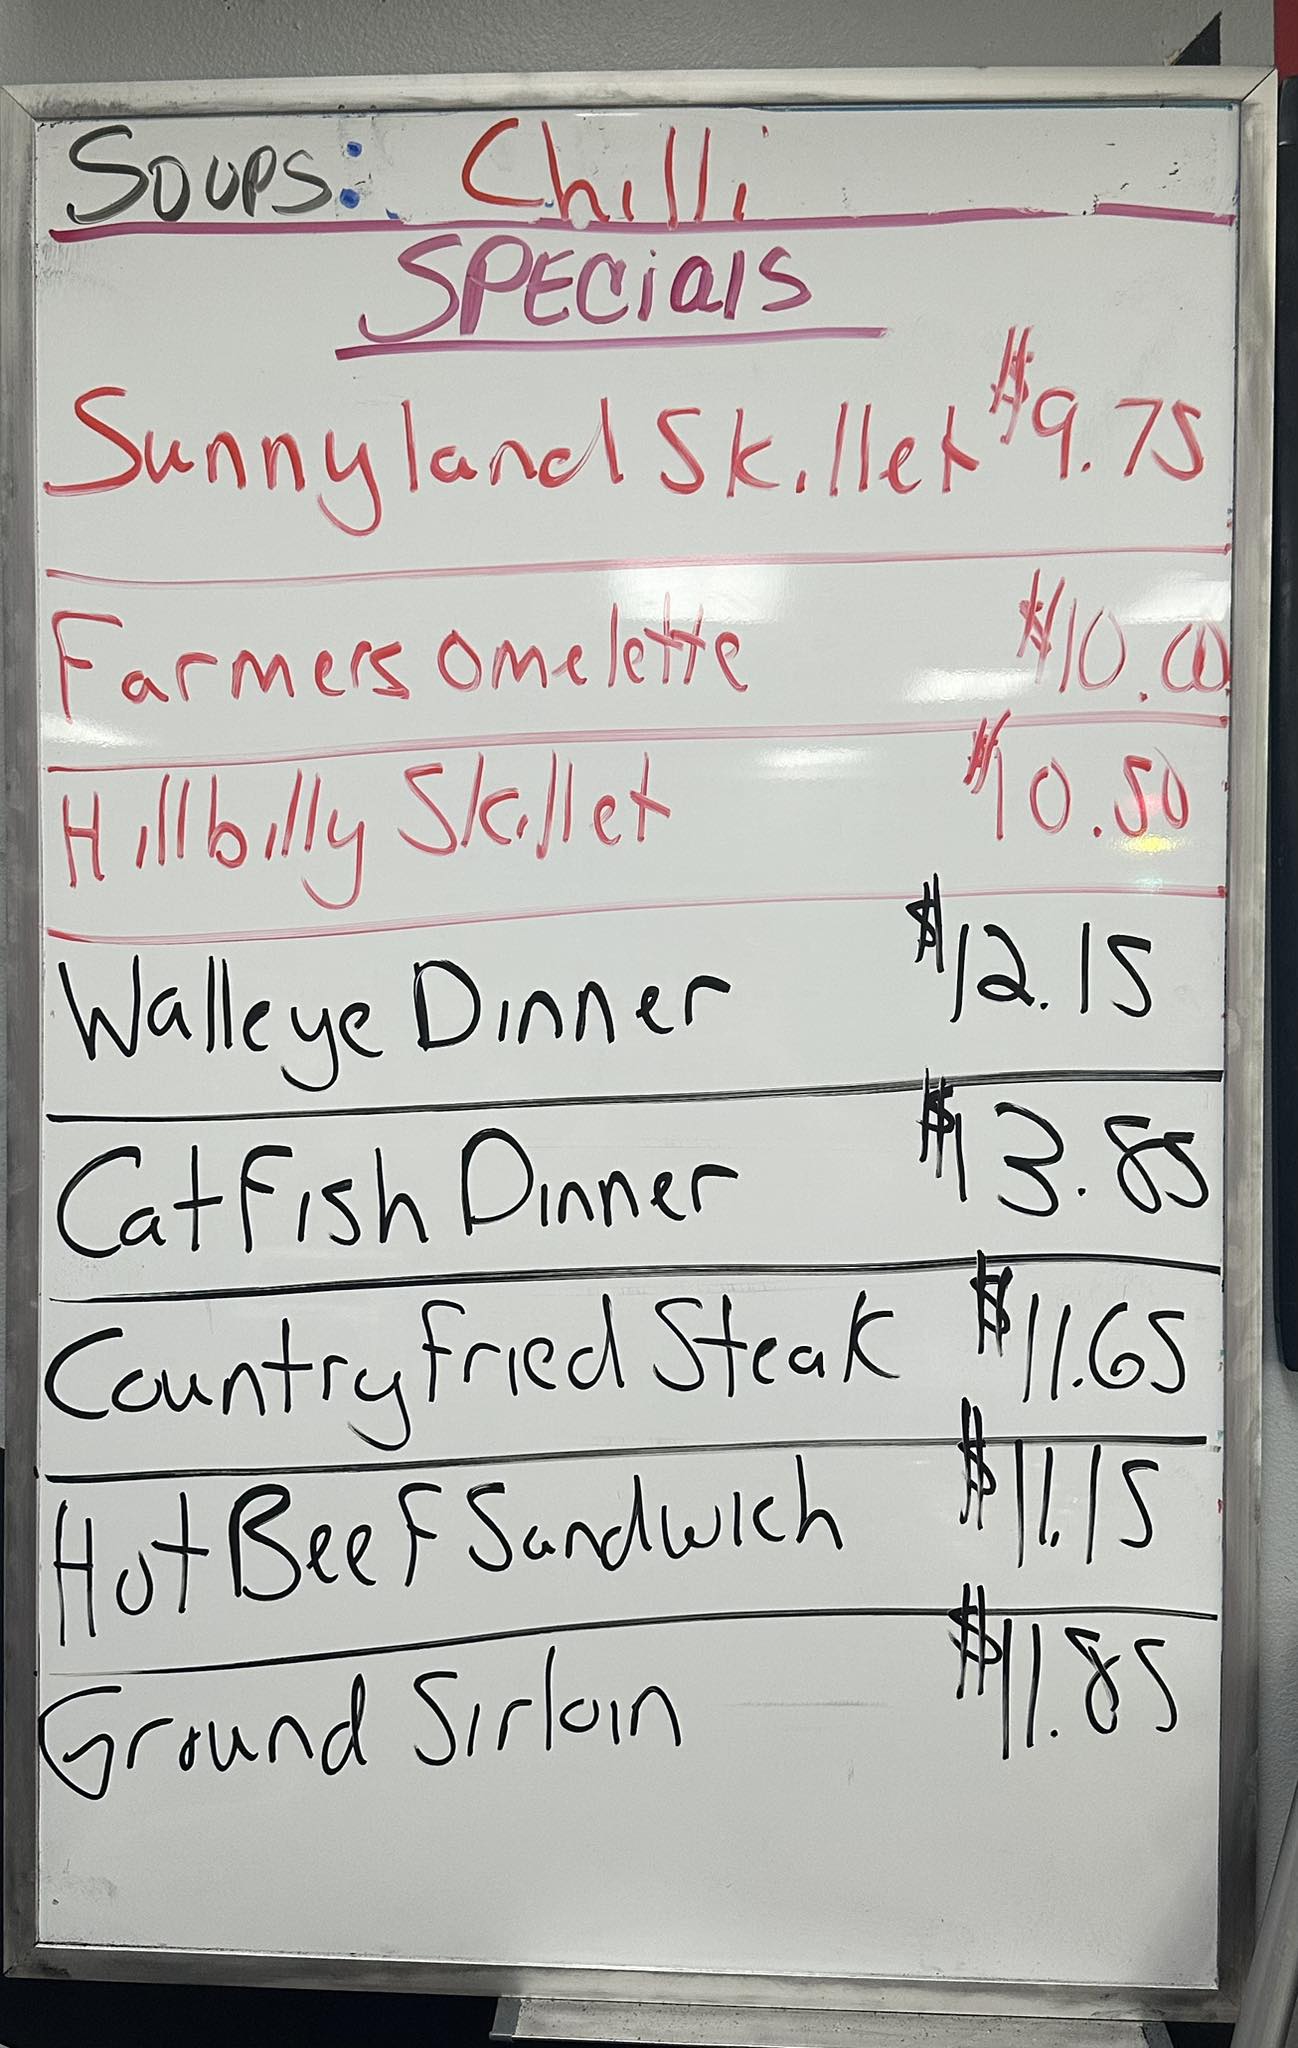 Soups: Chilli
SPECiaLS
Sunnyland Skillet $9.75
Farmers omelette $10.00
Hillbilly Skillet $10.50
Walleye Dinner $12.15
CatFish Dinner $13.85
Country Fried Steak $11.65
Hot Beef Sandwich $11.15
Ground Sirloin $11.85